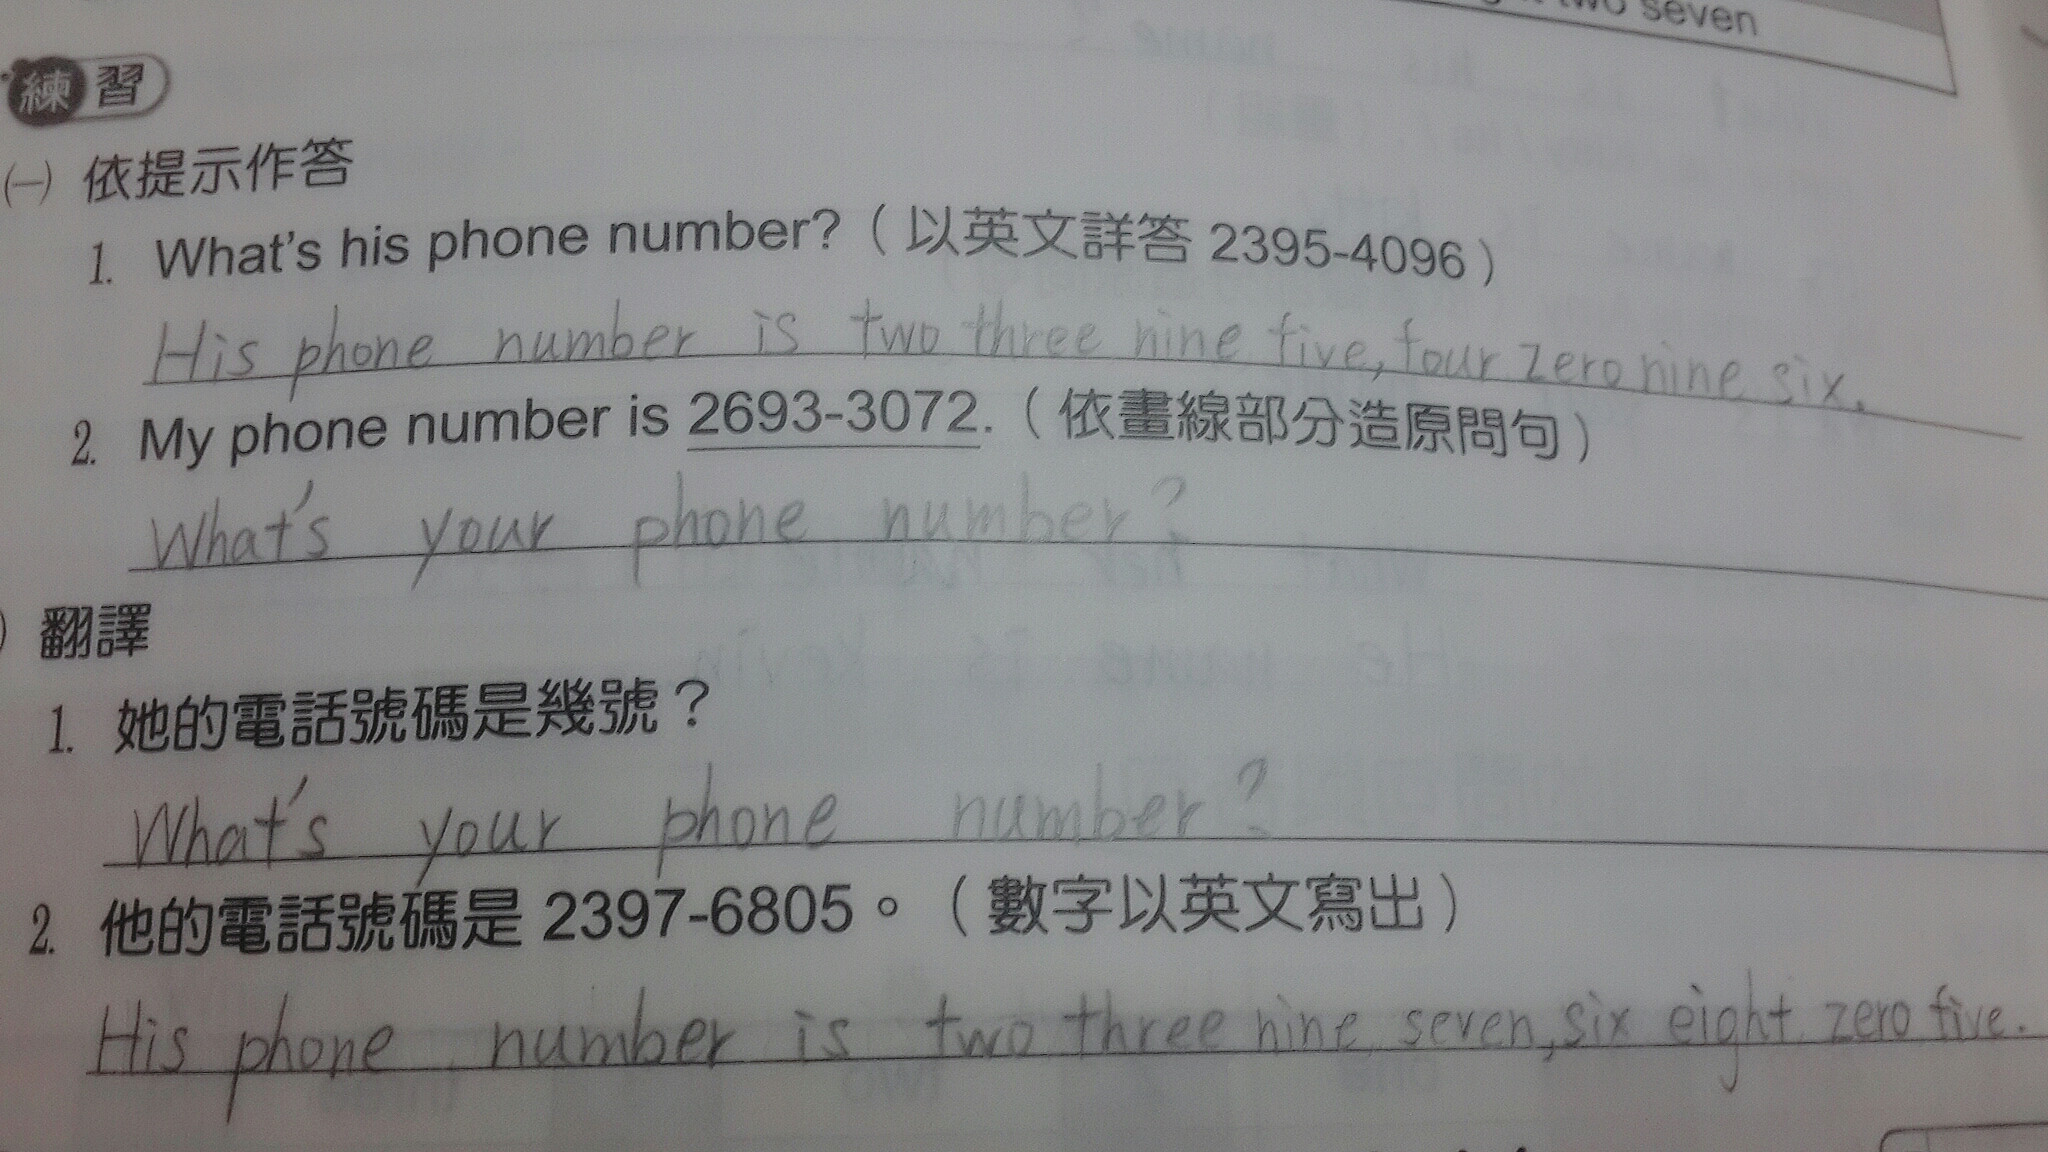 two seven
練習
(一) 依提示作答
1. What's his phone number?（以英文詳答 2395-4096）
His phone number is two three nine five, four zero nine six.
2. My phone number is 2693-3072.（依畫線部分造原問句）
What's your phone number?
) 翻譯
1. 她的電話號碼是幾號？
What's your phone number?
2. 他的電話號碼是 2397-6805。（數字以英文寫出）
His phone number is two three nine seven, six eight zero five.